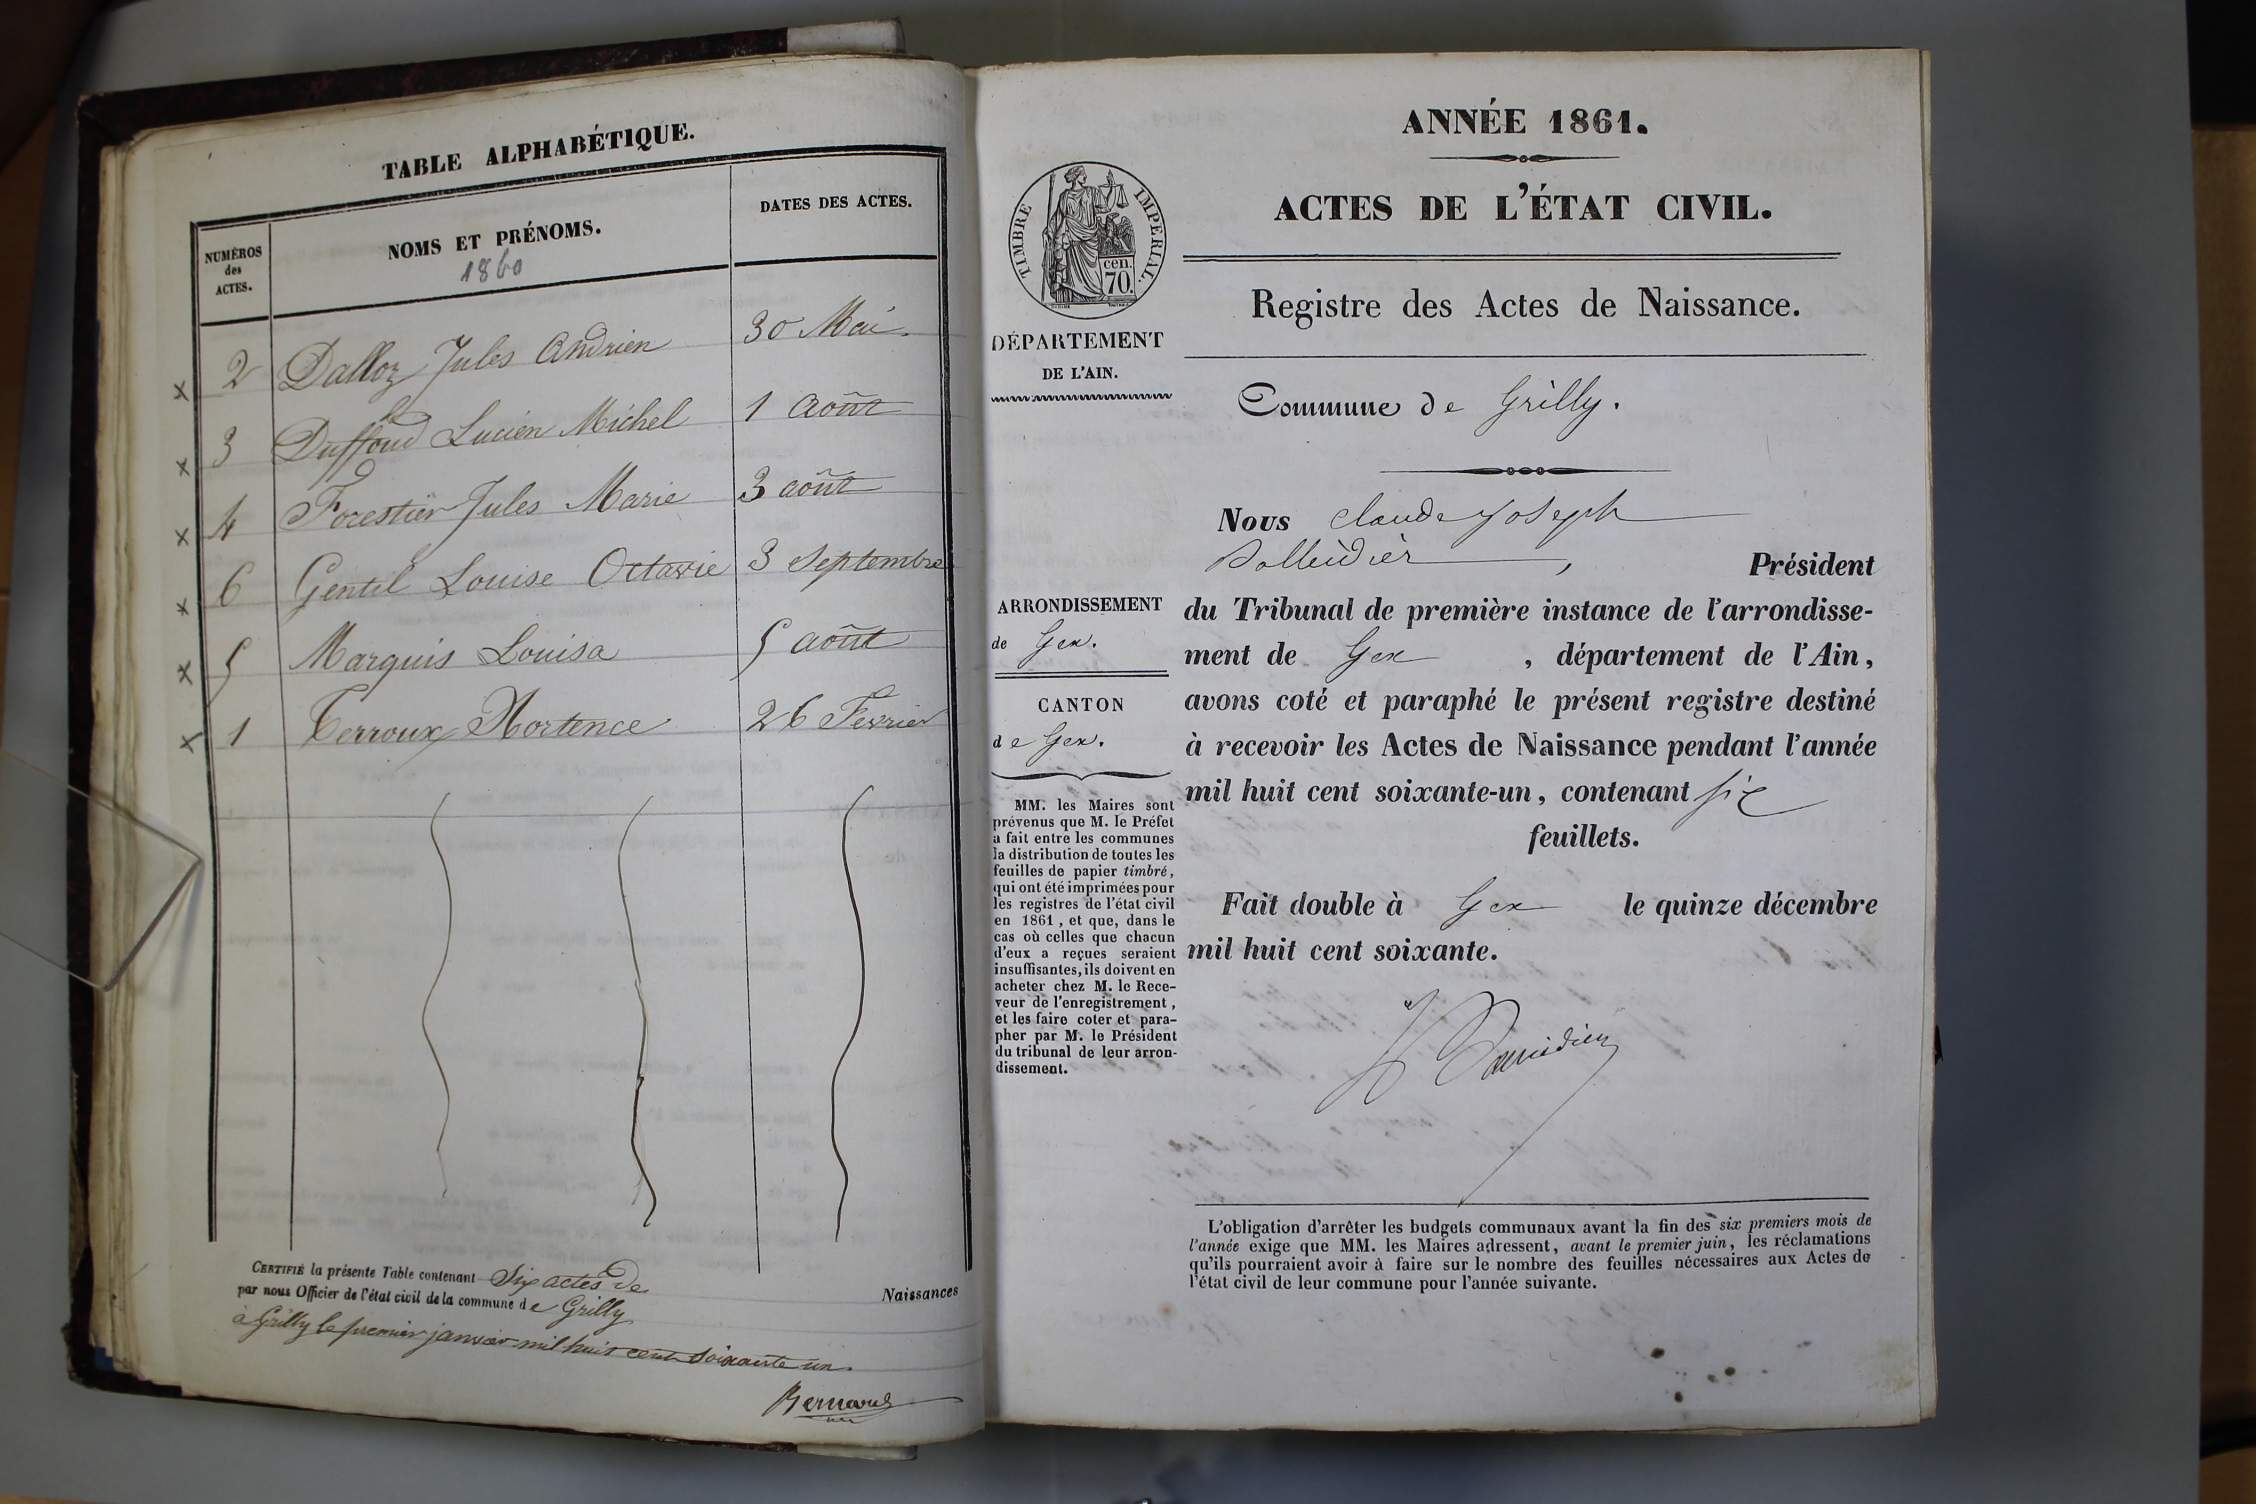 TABLE ALPHABÉTIQUE.
NUMÉROS
des
ACTES.
NOMS ET PRÉNOMS.
1860
DATES DES ACTES.
x 2 Dalloz Jules Andrien 30 Mai
x 3 Duffoud Lucien Michel 1 août
x 4 Forestier Jules Marie 3 août
x 6 Gentil Louise Octavie 3 Septembre
x 5 Marquis Louisa 5 août
x 1 Terroux Hortence 26 Fevrier
CERTIFIÉ la présente Table contenant Six actes de
Naissances
par nous Officier de l'état civil de la commune de Grilly
à Grilly le premier janvier mil huit cent soixante un.
Bernard
ANNÉE 1861.
ACTES DE L'ÉTAT CIVIL.
Registre des Actes de Naissance.
TIMBRE IMPERIAL.
cen.
70.
DÉPARTEMENT
DE L'AIN.
ARRONDISSEMENT
de Gex.
CANTON
de Gex.
MM. les Maires sont
prévenus que M. le Préfet
a fait entre les communes
la distribution de toutes les
feuilles de papier timbré,
qui ont été imprimées pour
les registres de l'état civil
en 1861, et que, dans le
cas où celles que chacun
d'eux a reçues seraient
insuffisantes, ils doivent en
acheter chez M. le Rece-
veur de l'enregistrement,
et les faire coter et para-
pher par M. le Président
du tribunal de leur arron-
dissement.
Commune de Grilly.
Nous Claude Joseph
, Président
du Tribunal de première instance de l'arrondisse-
ment de Gex, département de l'Ain,
avons coté et paraphé le présent registre destiné
à recevoir les Actes de Naissance pendant l'année
mil huit cent soixante-un, contenant six
feuillets.
Fait double à Gex le quinze décembre
mil huit cent soixante.
L'obligation d'arrêter les budgets communaux avant la fin des six premiers mois de
l'année exige que MM. les Maires adressent, avant le premier juin, les réclamations
qu'ils pourraient avoir à faire sur le nombre des feuilles nécessaires aux Actes de
l'état civil de leur commune pour l'année suivante.